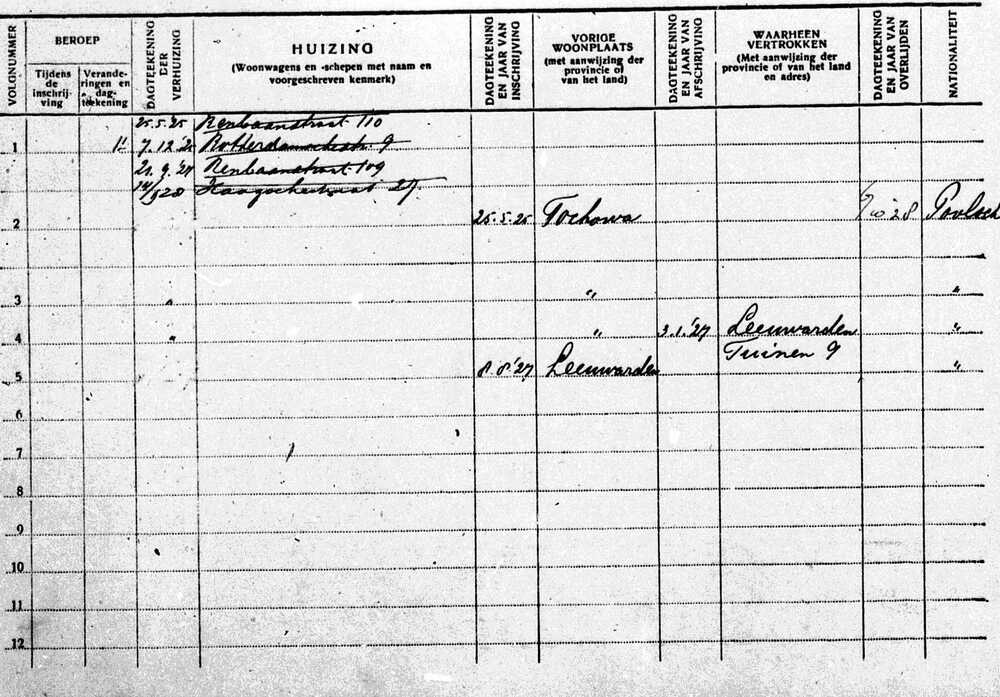 VOLGNUMMER
BEROEP
Tijdens de inschrij- ving
Verande- ringen en dag- teekening
DAGTEEKENING DER VERHUIZING
HUIZING
(Woonwagens en -schepen met naam en voorgeschreven kenmerk)
DAGTEEKENING EN JAAR VAN INSCHRIJVING
VORIGE WOONPLAATS
(met aanwijzing der provincie of van het land)
DAGTEEKENING EN JAAR VAN AFSCHRIJVING
WAARHEEN VERTROKKEN
(Met aanwijzing der provincie of van het land en adres)
DAGTEEKENING EN JAAR VAN OVERLIJDEN
NATIONALITEIT
25.5.25 Renbaanstraat 110
1 7.12.'25 Rotterdamschestr. 9
21.9.'27 Renbaanstraat 109
Haagschestraat 27
2 25.5.25 Tochowa '28 Poolsch
3 " " "
4 " " 3.1.'27 Leeuwarden "
Tuinen 9
5 8.8.'27 Leeuwarden "
6
7
8
9
10
11
12